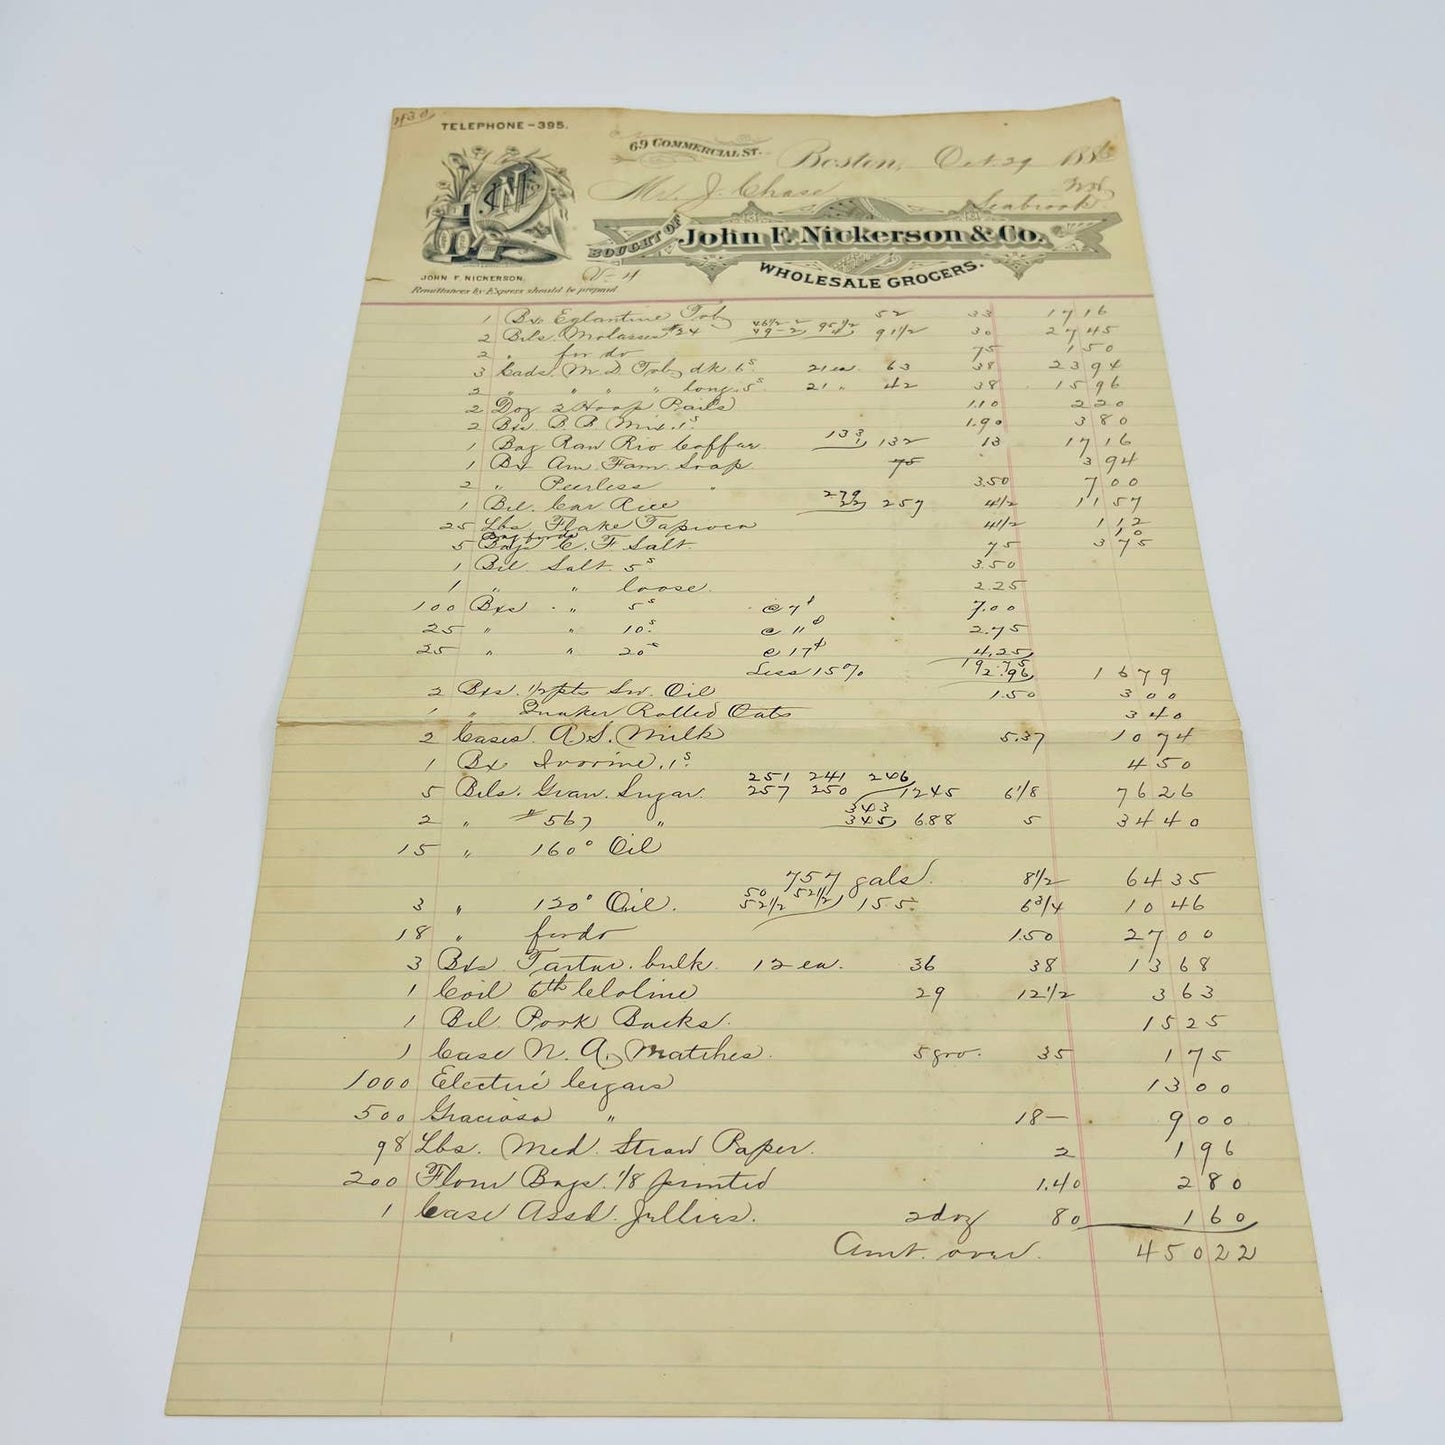 430
TELEPHONE-395.
69 COMMERCIAL ST. Boston, Oct 29 188
Mr. J. Chase
Seabrook
BOUGHT OF John F. Nickerson & Co.
WHOLESALE GROCERS.
JOHN F. NICKERSON.
Remittances by Express should be prepaid
1 Bx Eglantine Tob 52 33 17 16
2 Bbls. Molasses #24 46 1/2-2 49-2 95 1/2 4 91 1/2 30 27 45
2 " for do 75 1 50
3 Cads. M. D. Tob dk 6s 21 ea 63 38 23 94
2 " " " long 5s 21 " 42 38 15 96
2 Doz 2 Hoop Pails 1.10 2 20
2 Bxs. B. B. Mix. 1s 1.90 3 80
1 Bag Raw Rio Coffee 133 1 132 13 17 16
1 Bx Am. Fam. Soap 75 3 94
2 " Peerless " 3.50 7 00
1 Bbl. Car Rice 279 22 257 4 1/2 11 57
25 Lbs Flake Tapioca 4 1/2 1 12
10
5 Bags C. F. Salt. 75 3 75
1 Bbl. Salt. 5s 3.50
1 " " loose 2.25
100 Bxs. " 5s @ 7¢ 7.00
25 " " 10s @ 11¢ 2.75
25 " " 20s @ 17¢ 4.25
19.75
Less 15% 2.96 16 79
2 Bxs. 1/2 pts Sw. Oil 1.50 3 00
1 " Quaker Rolled Oats 3 40
2 Cases. A. S. Milk 5.37 10 74
1 Bx Ivorine. 1s 4 50
251 241 246
5 Bbls. Gran. Sugar. 257 250 1245 6 1/8 76 26
2 " #567 " 343 345 688 5 34 40
15 " 160° Oil
757 gals. 8 1/2 64 35
3 " 120° Oil. 50 52 1/2 52 1/2 155 6 3/4 10 46
18 " for do 1.50 27 00
3 Bxs Tartar. bulk. 12 ea. 36 38 13 68
1 Coil 6th Cloline 29 12 1/2 3 63
1 Bbl. Pork Backs. 15 25
1 Case N. A. Matches. 5 gro. 35 1 75
1000 Electric Cigars 13 00
500 Graciosa " 18- 9 00
98 Lbs. Med. Straw Paper. 2 1 96
200 Flour Bags. 1/8 printed 1.40 2 80
1 Case Assd. Jellies. 2 doz 80 1 60
Amt. over. 450 22